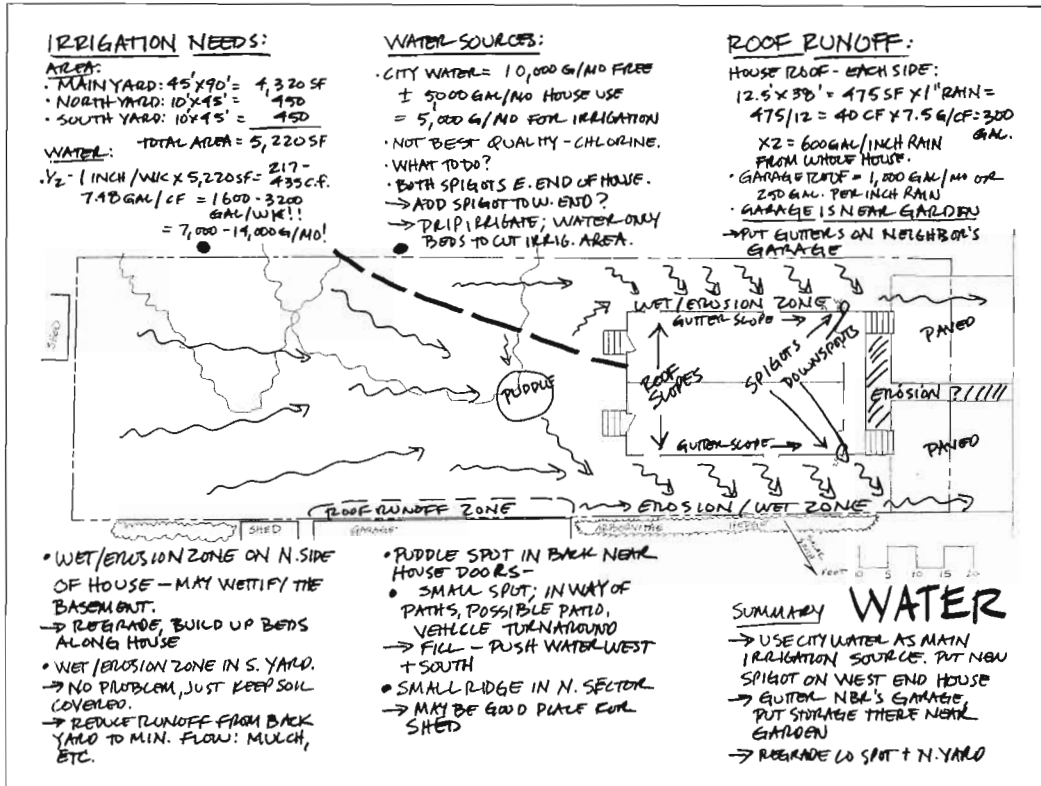 IRRIGATION NEEDS:
AREA:
• MAIN YARD: 45'X90' = 4,320 SF
• NORTH YARD: 10'X45' = 450
• SOUTH YARD: 10'X45' = 450
TOTAL AREA = 5,220 SF
WATER:
• 1/2 - 1 INCH/WK X 5,220 SF = 217-
435 C.F.
7.48 GAL/CF = 1600 - 3200
GAL/WK!!
= 7,000 - 14,000 G/MO!
WATER SOURCES:
• CITY WATER = 10,000 G/MO FREE
± 5000 GAL/MO HOUSE USE
= 5,000 G/MO FOR IRRIGATION
• NOT BEST QUALITY - CHLORINE.
• WHAT TO DO?
• BOTH SPIGOTS E. END OF HOUSE.
→ ADD SPIGOT TO W. END?
→ DRIP IRRIGATE; WATER ONLY
BEDS TO CUT IRRIG. AREA.
ROOF RUNOFF:
HOUSE ROOF - EACH SIDE:
12.5' X 38' = 475 SF X 1" RAIN =
475/12 = 40 CF X 7.5 G/CF = 300
GAL.
X2 = 600 GAL/INCH RAIN
FROM WHOLE HOUSE.
• GARAGE ROOF = 1,000 GAL/MO OR
250 GAL. PER INCH RAIN
• GARAGE IS NEAR GARDEN
→ PUT GUTTERS ON NEIGHBOR'S
GARAGE
SHED
WET/EROSION ZONE
GUTTER SLOPE
PAVED
ROOF
SLOPES
SPIGOTS
DOWNSPOUTS
PUDDLE
EROSION ?
GUTTER SLOPE
PAVED
ROOF RUNOFF ZONE
EROSION/WET ZONE
SHED
GARAGE
ARBORVITAE
HEDGE
FEET 0 5 10 15 20
• WET/EROSION ZONE ON N. SIDE
OF HOUSE - MAY WETTIFY THE
BASEMENT.
→ REGRADE, BUILD UP BEDS
ALONG HOUSE
• WET/EROSION ZONE IN S. YARD.
→ NO PROBLEM, JUST KEEP SOIL
COVERED.
→ REDUCE RUNOFF FROM BACK
YARD TO MIN. FLOW: MULCH,
ETC.
• PUDDLE SPOT IN BACK NEAR
HOUSE DOORS -
• SMALL SPOT; IN WAY OF
PATHS, POSSIBLE PATIO,
VEHICLE TURNAROUND
→ FILL - PUSH WATER WEST
+ SOUTH
• SMALL RIDGE IN N. SECTOR
→ MAY BE GOOD PLACE FOR
SHED
SUMMARY WATER
→ USE CITY WATER AS MAIN
IRRIGATION SOURCE. PUT NEW
SPIGOT ON WEST END HOUSE
→ GUTTER NBR'S GARAGE,
PUT STORAGE THERE NEAR
GARDEN
→ REGRADE LO SPOT + N. YARD